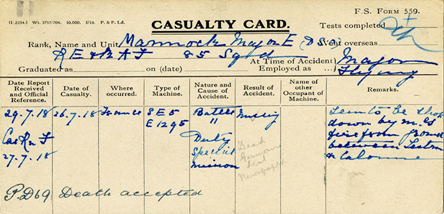 CASUALTY CARD.
F. S. FORM 559.
Tests completed
Rank, Name and Unit Mannock Major E (D.S.O)
overseas
R E & R A F 85 Sqd
At Time of Accident Major
Graduated as on (date) Employed as Flying
Date Report Received and Official Reference.
Date of Casualty.
Where occurred.
Type of Machine.
Nature and Cause of Accident.
Result of Accident.
Name of other Occupant of Machine.
Remarks.
29.7.18
26.7.18
France
SE5
E1295
Battle
Missing
Duty
Special
Mission
Cas R
27.7.18
Dead
Newspaper
Seen to be shot
down by m.g
fire from ground
between Lestrem
& Calonne
P.D69 Death accepted